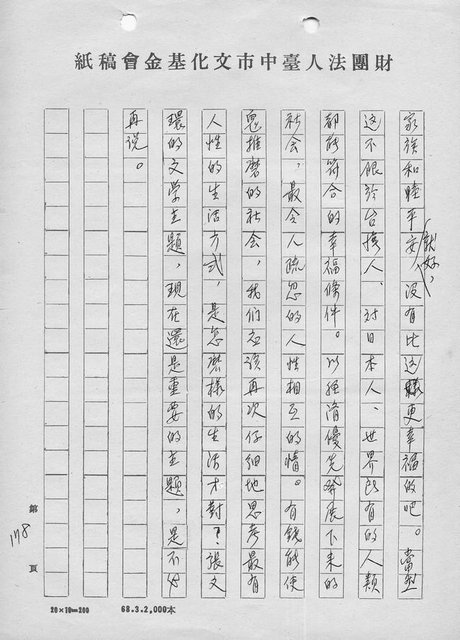 財團法人臺中市文化基金會稿紙
家族和睦平安就好,没有比这更幸福的吧。當型
这不限於台灣人、对日本人、世界所有的人類
都能符合的幸福條件。以经済優先発展下来的
社会,最令人疏忽的人性相互的情。有錢能使
鬼推磨的社会,我们应該再次仔細地思考最有
人性的生活方式,是怎麽樣的生活才對?張文
環的文学主題,現在還是重要的主題,是不必
再说。
第
178
頁
20×10=200
68.3.2,000本